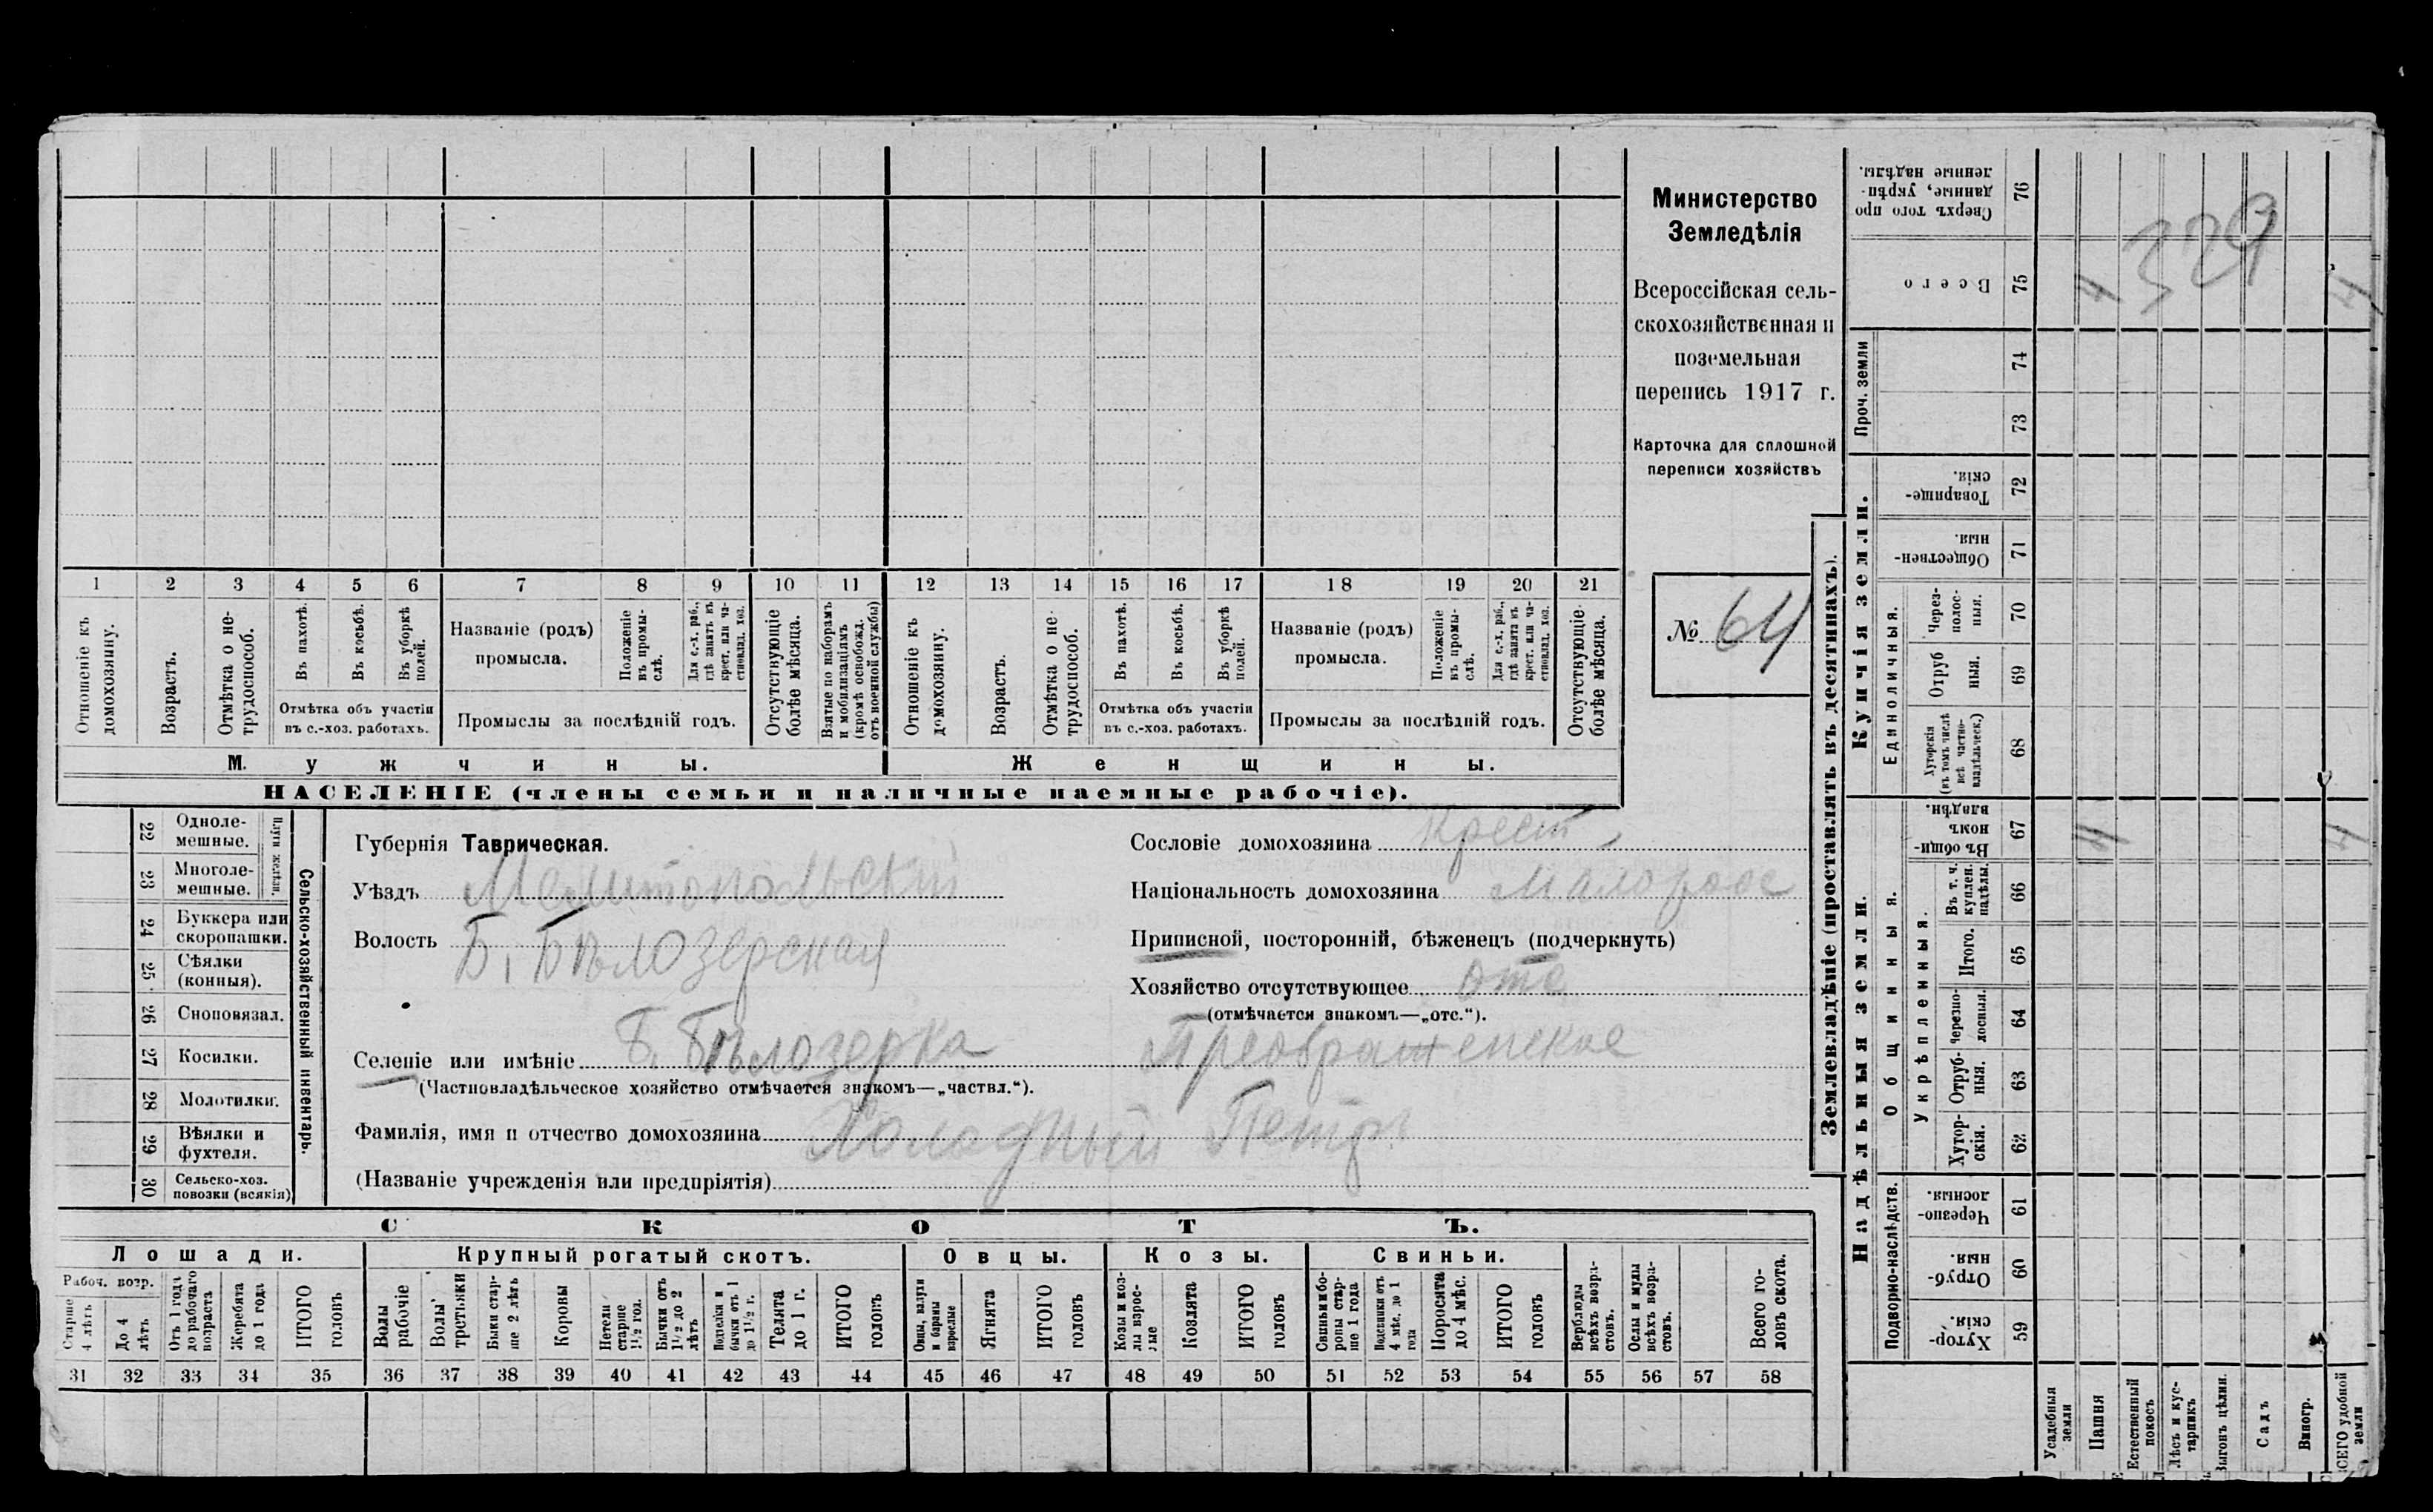 1 2 3 4 5 6 7 8 9 10 11 12 13 14 15 16 17 18 19 20 21
Отношеніе къ домохозяину.
Возрастъ.
Отмѣтка о не-
трудоспособ.
Въ пахотѣ.
Въ косьбѣ.
Въ уборкѣ
полей.
Отмѣтка объ участіи
въ с.-хоз. работахъ.
Названіе (родъ)
промысла.
Положеніе
въ промы-
слѣ.
Для с.-х. раб.,
гдѣ занятъ въ
крест. или ча-
стновлад. хоз.
Промыслы за послѣдній годъ.
Отсутствующіе
болѣе мѣсяца.
Взятые по наборамъ
и мобилизаціямъ
(кромѣ освобожд.
отъ военной службы)
Отношеніе къ
домохозяину.
Возрастъ.
Отмѣтка о не-
трудоспособ.
Въ пахотѣ.
Въ косьбѣ.
Въ уборкѣ
полей.
Отмѣтка объ участіи
въ с.-хоз. работахъ.
Названіе (родъ)
промысла.
Положеніе
въ промы-
слѣ.
Для с.-х. раб.,
гдѣ занята въ
крест. или ча-
стновлад. хоз.
Промыслы за послѣдній годъ.
Отсутствующіе
болѣе мѣсяца.
Мужчины.
Женщины.
НАСЕЛЕНІЕ (члены семьи и наличные наемные рабочіе).
Министерство
Земледѣлія
Всероссійская сель-
скохозяйственная и
поземельная
перепись 1917 г.
Карточка для сплошной
переписи хозяйствъ
№ 64
22 Одноле-
мешные.
23 Многоле-
мешные.
Плуги желѣзн.
24 Буккера или
скоропашки.
25 Сѣялки
(конныя).
26 Сноповязал.
27 Косилки.
28 Молотилки.
29 Вѣялки и
фухтеля.
30 Сельско-хоз.
повозки (всякія)
Сельско-хозяйственный инвентарь.
Губернія Таврическая.
Уѣздъ Мелитопольскій
Волость Б. Бѣлозерская
Селеніе или имѣніе Б. Бѣлозерка Преображенское
(Частновладѣльческое хозяйство отмѣчается знакомъ—„частвл.“).
Фамилія, имя и отчество домохозяина Холодный Петръ
(Названіе учрежденія или предпріятія)
Сословіе домохозяина крест.
Національность домохозяина малоросс
Приписной, посторонній, бѣженецъ (подчеркнуть)
Хозяйство отсутствующее отс
(отмѣчается знакомъ—„отс.“).
СКОТЪ.
Лошади.
Крупный рогатый скотъ.
Овцы.
Козы.
Свиньи.
Рабоч. возр.
Старше
4 лѣтъ
До 4
лѣтъ
Отъ 1 года
до рабочаго
возраста
Жеребята
до 1 года
ИТОГО
головъ
Волы
рабочіе
Волы
третьяки
Быки стар-
ше 2 лѣтъ
Коровы
Нетели
старше
1½ год.
Бычки отъ
1½ до 2
лѣтъ
Подтелки и
бычки отъ 1
до 1½ г.
Телята
до 1 г.
ИТОГО
головъ
Овцы, валухи
и бараны
взрослые
Ягнята
ИТОГО
головъ
Козы и коз-
лы взрос-
лые
Козлята
ИТОГО
головъ
Свиньи и бо-
ровы стар-
ше 1 года
Подсвинки отъ
4 мѣс. до 1
года
Поросята
до 4 мѣс.
ИТОГО
головъ
Верблюды
всѣхъ возра-
стовъ.
Ослы и мулы
всѣхъ возра-
стовъ.
Всего го-
ловъ скота.
31 32 33 34 35 36 37 38 39 40 41 42 43 44 45 46 47 48 49 50 51 52 53 54 55 56 57 58
Землевладѣніе (проставлять въ десятинахъ).
Сверхъ того про
данные, укрѣп-
ленные надѣлы.
76
Всего
75
Проч. земли
74
73
Купчія земли.
Товарище-
скія.
72
Обществен-
ныя.
71
Единоличныя.
Через-
полос-
ныя.
70
Отруб
ныя.
69
Хуторскія
(въ томъ числѣ
всѣ частно-
владѣльческ.)
68
Надѣльныя земли.
Общинныя.
Въ общи-
номъ
владѣн.
67
Укрѣпленныя.
Въ т. ч.
куплен.
надѣлы.
66
Итого.
65
Черезпо-
лосныя.
64
Отруб-
ныя.
63
Хутор-
скія.
62
Подворно-наслѣдств.
Черезпо-
лосныя.
61
Отруб-
ныя.
60
Хутор-
скія.
59
Усадебныя
земли
Пашня
Естественный
покосъ
Лѣсъ и кус-
тарникъ
Выгонъ цѣлин.
Садъ
Виногр.
ВСЕГО удобной
земли
4
329
4
4
4